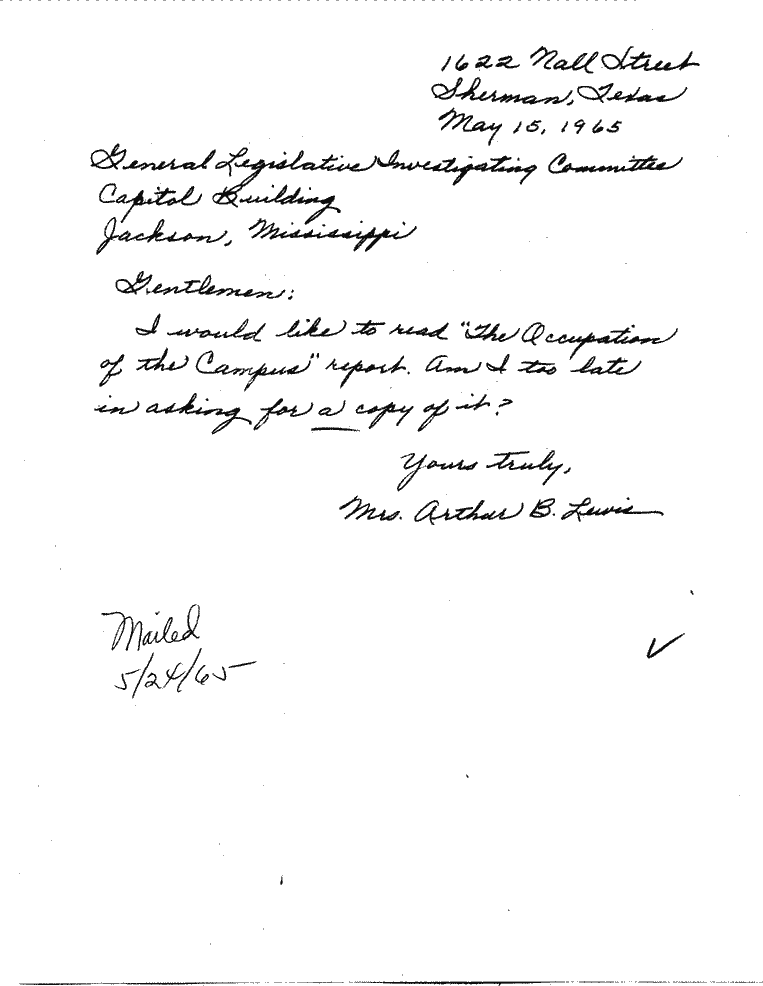 1622 Nall Street
Sherman, Texas
May 15, 1965
General Legislative Investigating Committee
Capitol Building
Jackson, Mississippi
Gentlemen:
I would like to read "The Occupation
of the Campus" report. Am I too late
in asking for a copy of it?
Yours truly,
Mrs. Arthur B. Lewis
Mailed
5/24/65